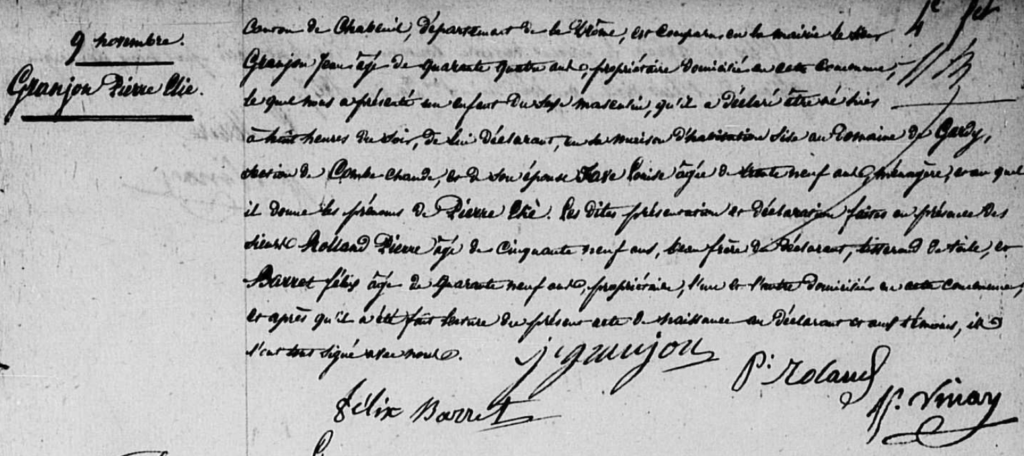 9 novembre.
Granjon Pierre Elie.
Canton de Chabeuil, département de la Drôme, est comparu en la mairie le sieur
Granjon Jean âgé de quarante quatre ans, propriétaire domicilié en cette commune,
le quel nous a présenté un enfant du sexe masculin, qu'il a déclaré être né hier
à huit heures du soir, de lui déclarant, en sa maison d'habitation sise au Domaine de Gardy,
section de Combe chaude, et de son épouse Louise âgée de trente neuf ans ménagère, et au quel
il donne les prénoms de Pierre Elie. Les dites présentation et déclaration faites en présence des
sieurs Rolland Pierre âgé de cinquante neuf ans, beau frère du déclarant, tisserand de toile, et
Barret félix âgé de quarante neuf ans, propriétaire, l'un et l'autre domiciliés en cette commune,
et après qu'il a été fait lecture du présent acte de naissance au déclarant et aux témoins, ils
l'ont tous signé avec nous.
j. granjon
P. Roland
félix Barret
Vinay